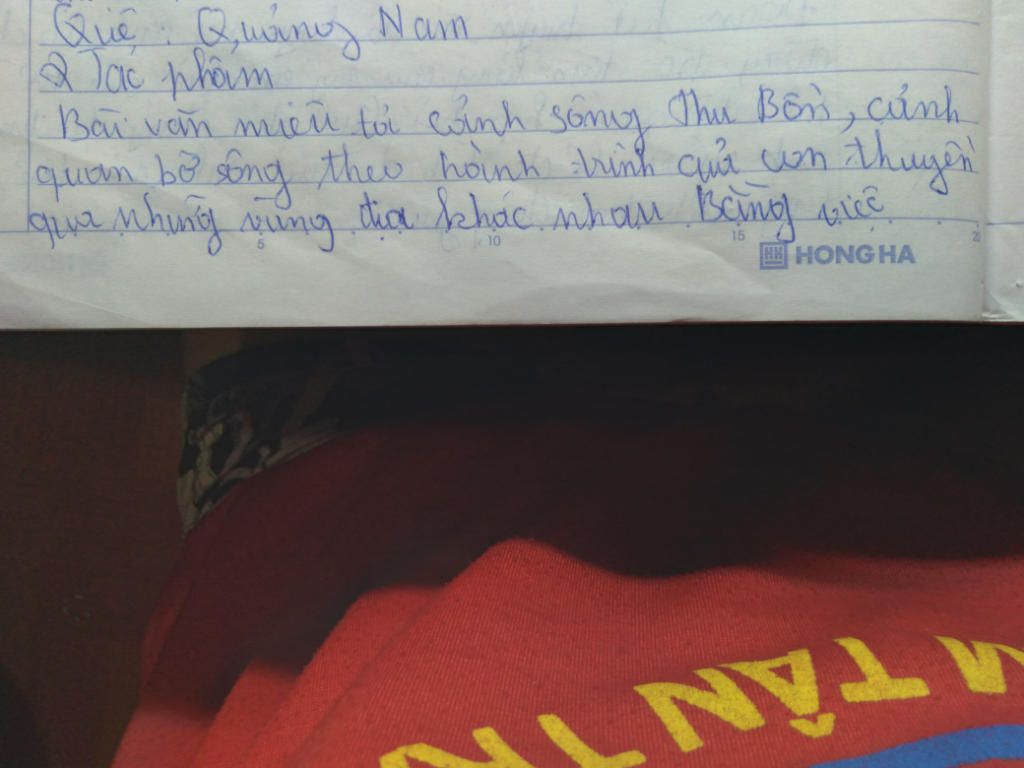 Quê : Quảng Nam
2 Tác phẩm
Bài văn miêu tả cảnh sông Thu Bồn, cảnh
quan bờ sông theo hành trình quả con thuyền
qua những vùng địa khác nhau Bằng việc
5 10 15 2
HH HONG HA
M TÂN TN